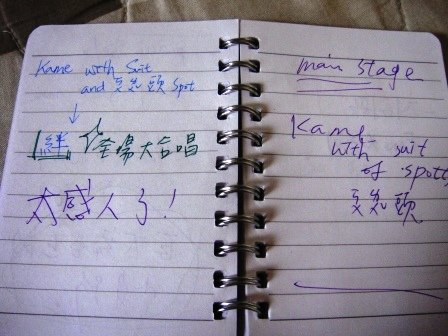 Kame with Suit
and 豆沙頭 Spot
絆 全場大合唱
太感人了!
main stage
Kame
with suit
of spott
豆沙頭